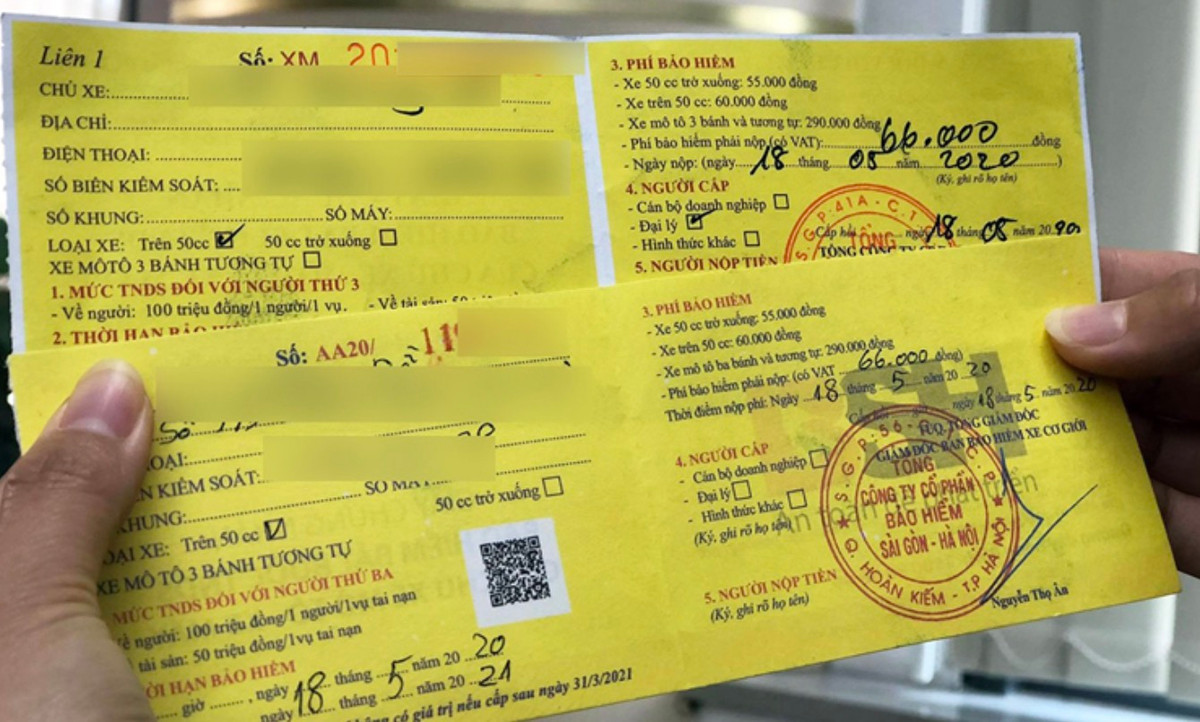 Liên 1
Số: XM 20
CHỦ XE:
ĐỊA CHỈ:
ĐIỆN THOẠI:
SỐ BIÊN KIỂM SOÁT:
SỐ KHUNG: SỐ MÁY:
LOẠI XE: Trên 50cc 50 cc trở xuống
XE MÔTÔ 3 BÁNH TƯƠNG TỰ
1. MỨC TNDS ĐỐI VỚI NGƯỜI THỨ 3
- Về người: 100 triệu đồng/1 người/1 vụ. - Về tài sản: 50
2. THỜI HẠN BẢO
3. PHÍ BẢO HIỂM
- Xe 50 cc trở xuống: 55.000 đồng
- Xe trên 50 cc: 60.000 đồng
- Xe mô tô 3 bánh và tương tự: 290.000 đồng
- Phí bảo hiểm phải nộp (có VAT): 66.000 đồng
- Ngày nộp: (ngày 18 tháng 05 năm 2020)
(Ký, ghi rõ họ tên)
4. NGƯỜI CẤP
- Cán bộ doanh nghiệp
- Đại lý
- Hình thức khác
ngày 18 tháng 05 năm 20 20
5. NGƯỜI NỘP TIỀN
S.G.P:41A - C.T
TỔNG
TỔNG CÔNG TY
Số: AA20/ 11
OẠI:
N KIỂM SOÁT:
KHUNG: SỐ MÁY
OẠI XE: Trên 50 cc 50 cc trở xuống
XE MÔ TÔ 3 BÁNH TƯƠNG TỰ
MỨC TNDS ĐỐI VỚI NGƯỜI THỨ BA
ề người: 100 triệu đồng/1 người/1vụ tai nạn
tài sản: 50 triệu đồng/1vụ tai nạn
ỜI HẠN BẢO HIỂM
giờ , ngày 18 tháng 5 năm 20 20
ngày 18 tháng 5 năm 20 21
có giá trị nếu cấp sau ngày 31/3/2021
3. PHÍ BẢO HIỂM
- Xe 50 cc trở xuống: 55.000 đồng
- Xe trên 50 cc: 60.000 đồng
- Xe mô tô ba bánh và tương tự: 290.000 đồng
- Phí bảo hiểm phải nộp: (có VAT 66.000 đồng)
Thời điểm nộp phí: Ngày 18 tháng 5 năm 20 20
ngày 18 tháng 5 năm 20 20
TUQ. TỔNG GIÁM ĐỐC
GIÁM ĐỐC BAN BẢO HIỂM XE CƠ GIỚI
4. NGƯỜI CẤP
- Cán bộ doanh nghiệp
- Đại lý
- Hình thức khác
(Ký, ghi rõ họ tên)
S.G.P:56
TỔNG
CÔNG TY CỔ PHẦN
BẢO HIỂM
SÀI GÒN - HÀ NỘI
Q. HOÀN KIẾM - T.P HÀ NỘI
An toàn để phát triển
5. NGƯỜI NỘP TIỀN
(Ký, ghi rõ họ tên)
Nguyễn Thọ Ân